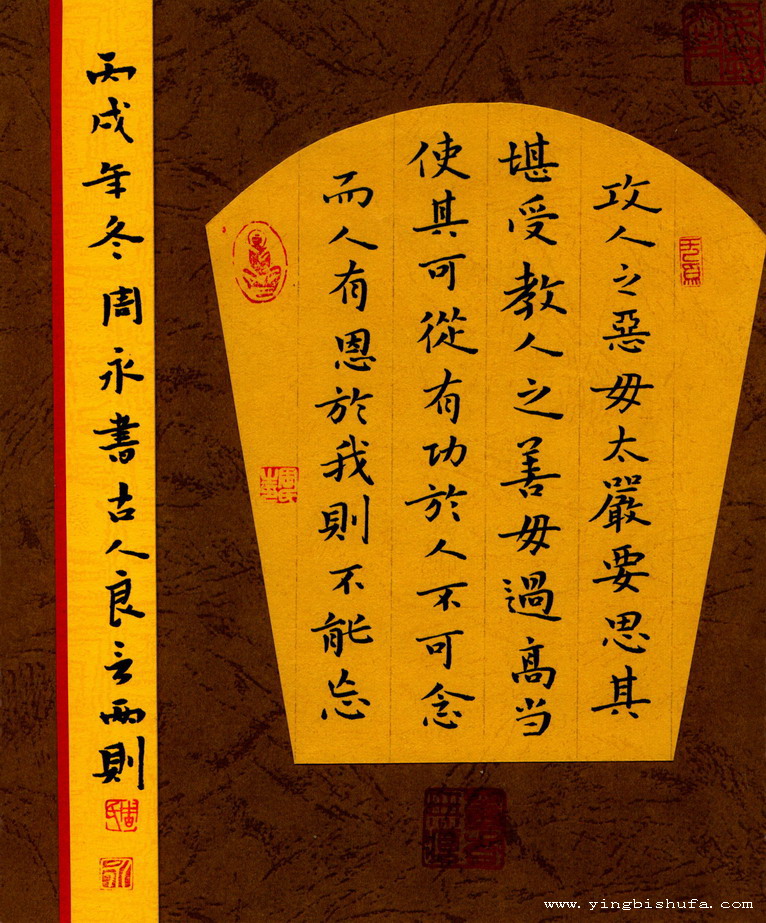 攻人之惡毋太嚴要思其
堪受教人之善毋過高当
使其可從有功於人不可念
而人有恩於我則不能忘
丙戌年冬周永書古人良言兩則
周氏
永
www.yingbishufa.com